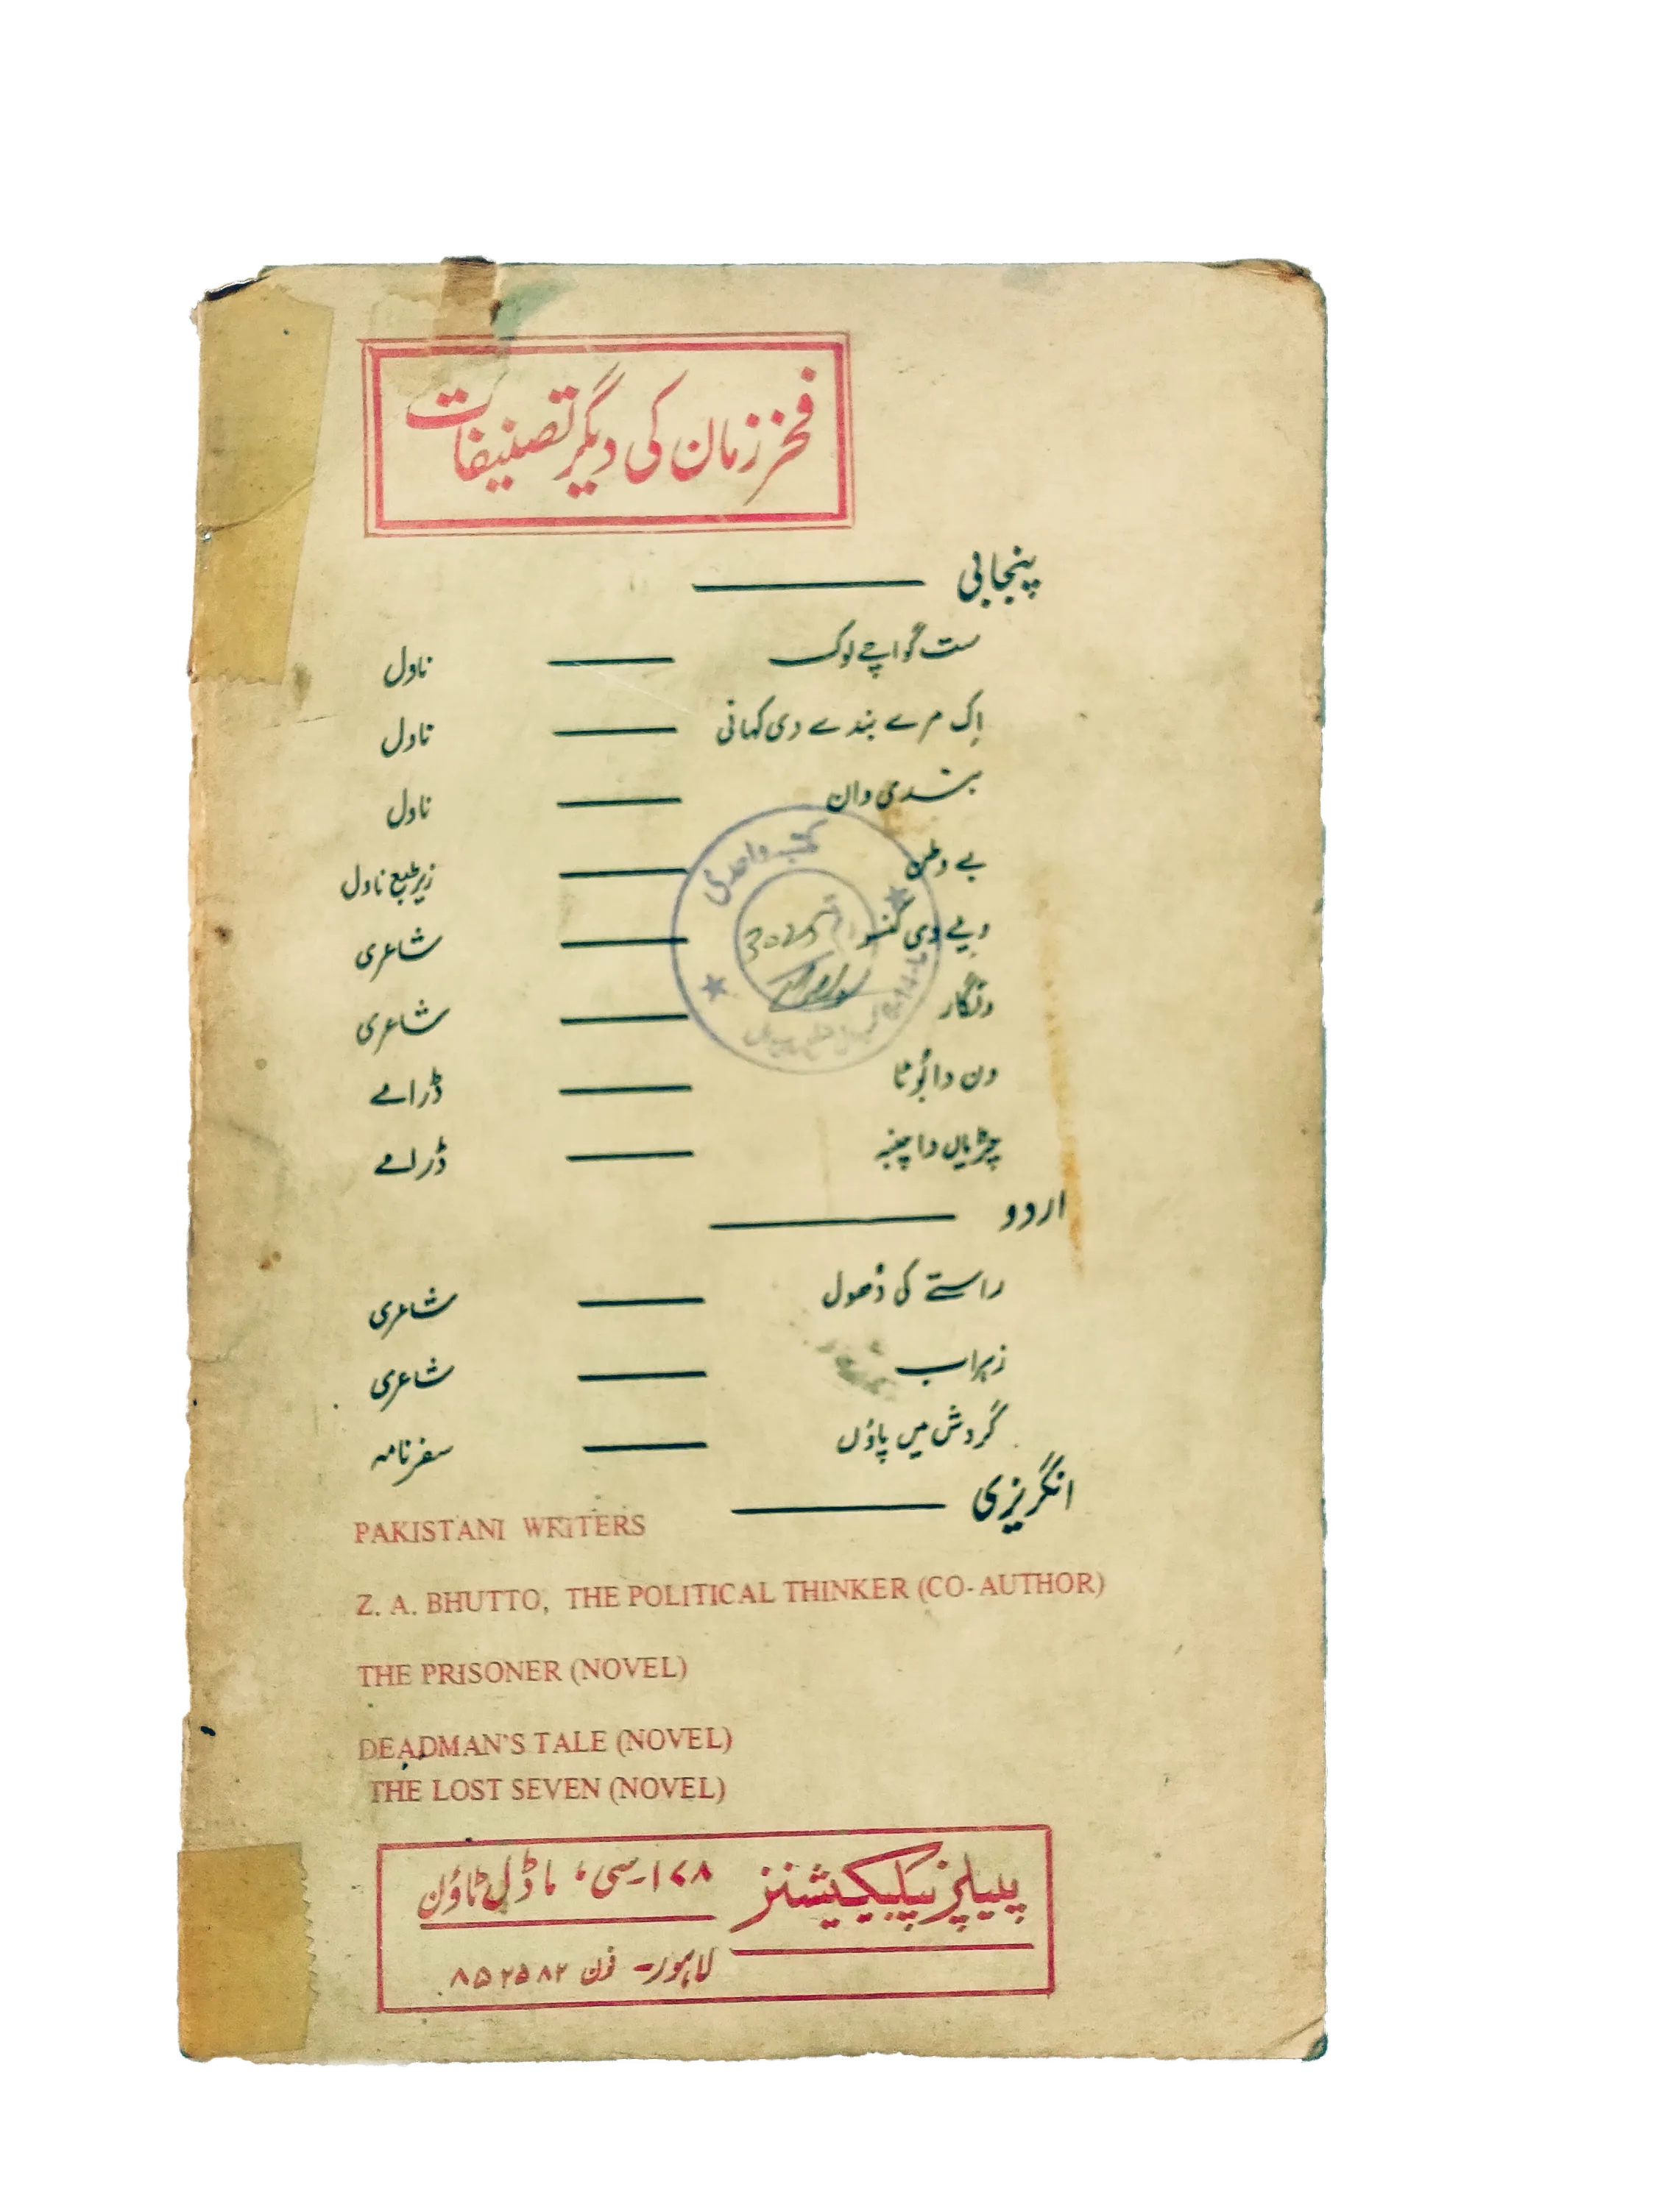 فخر زمان کی دیگر تصنیفات
پنجابی
ست گواچے لوک — ناول
اِک مرے بندے دی کہانی — ناول
بندی وان — ناول
بے وطن — زیر طبع ناول
کتب واحدی
ویے دی — شاعری
3025
ونگار — شاعری
ون دا بُوٹا — ڈرامے
چڑیاں دا چنبہ — ڈرامے
اردو
راستے کی دُھول — شاعری
زہراب — شاعری
گردش میں پاؤں — سفرنامہ
انگریزی
PAKISTANI WRITERS
Z. A. BHUTTO, THE POLITICAL THINKER (CO-AUTHOR)
THE PRISONER (NOVEL)
DEADMAN'S TALE (NOVEL)
THE LOST SEVEN (NOVEL)
پیپلز پبلیکیشنز
۱۷۸۔سی، ماڈل ٹاؤن
لاہور- فون ۸۵۲۵۸۲